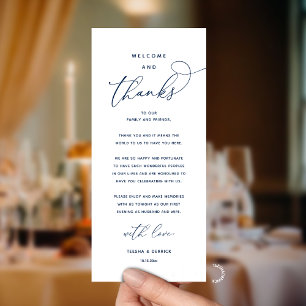 WELCOME
AND
thanks
TO OUR
FAMILY AND FRIENDS,
THANK YOU AND IT MEANS THE
WORLD TO US TO HAVE YOU HERE.
WE ARE SO HAPPY AND FORTUNATE
TO HAVE SUCH WONDERFUL PEOPLES
IN OUR LIVES AND ARE HONOURED TO
HAVE YOU CELEBRATING WITH US.
PLEASE ENJOY AND MAKE MEMORIES
WITH US TONIGHT AS OUR FIRST
EVENING AS HUSBAND AND WIFE.
with love,
TEESHA & DERRICK